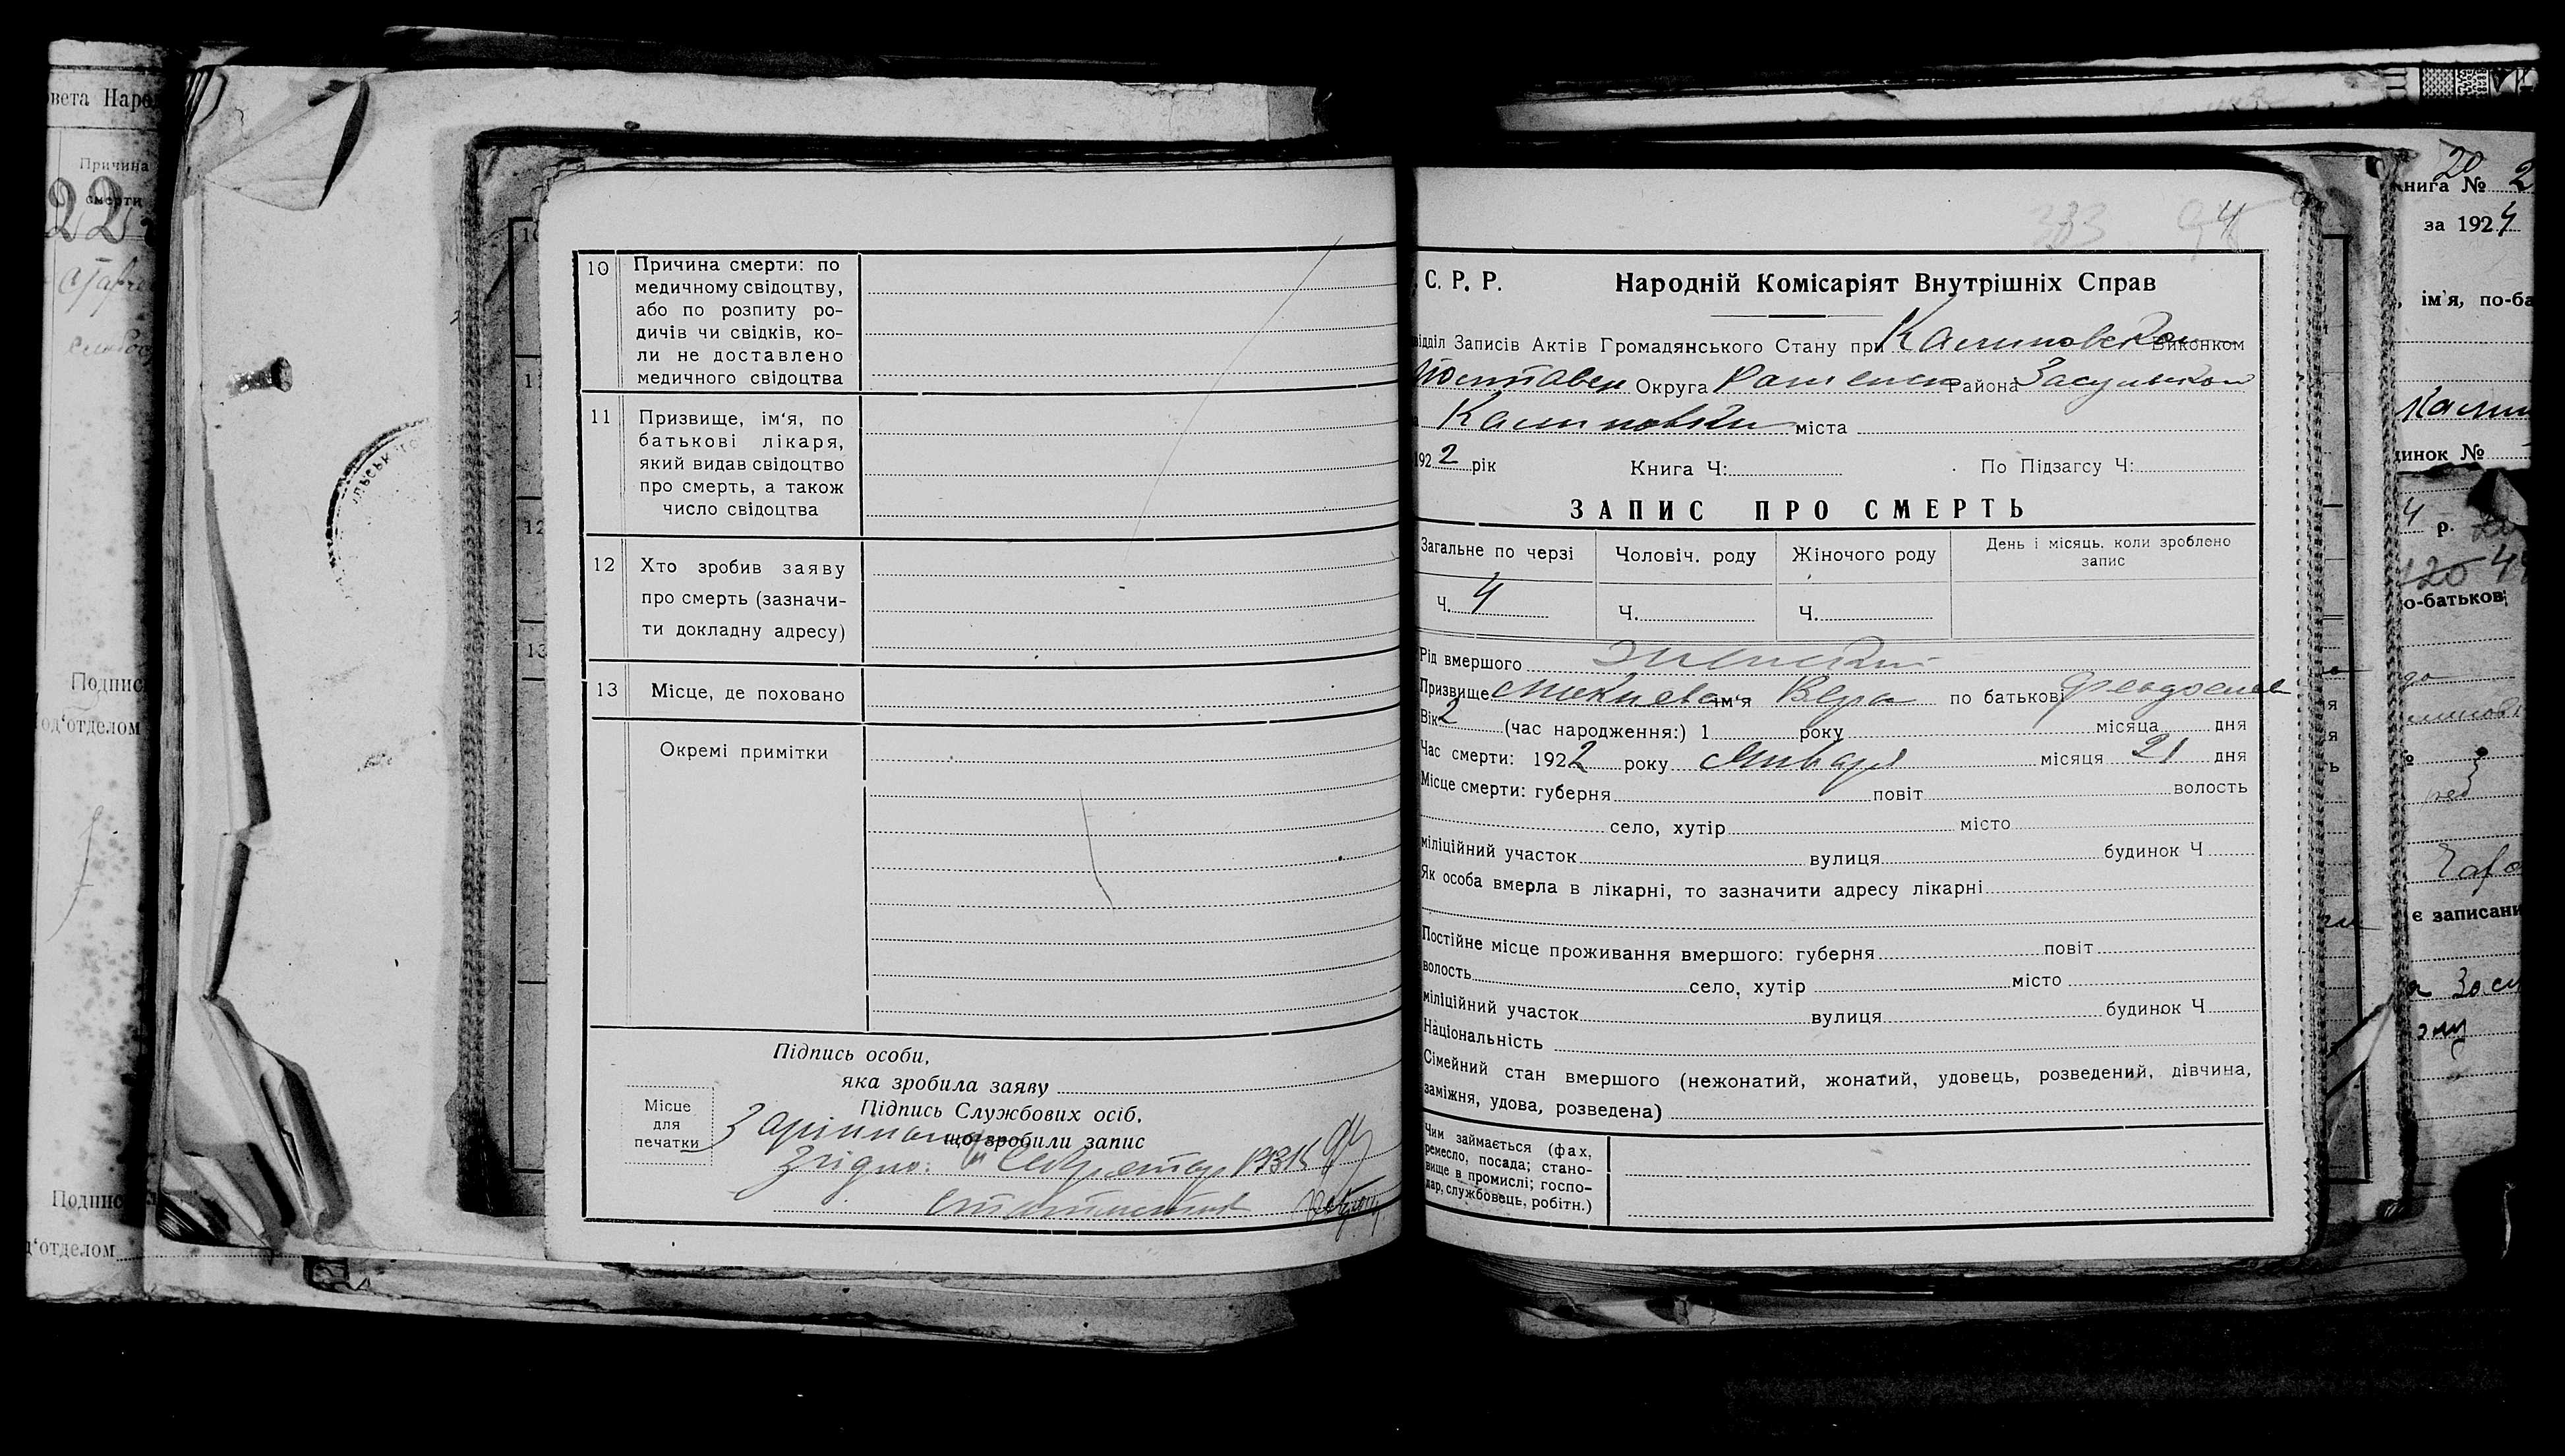 вета Наро
Причина
смерти
22
Подпис
од‘отделом
Подпис
д‘отделом
10 Причина смерти: по
медичному свідоцтву,
або по розпиту ро-
дичів чи свідків, ко-
ли не доставлено
медичного свідоцтва
11 Призвище, ім‘я, по
батькові лікаря,
який видав свідоцтво
про смерть, а також
число свідоцтва
12 Хто зробив заяву
про смерть (зазначи-
ти докладну адресу)
13 Місце, де поховано
Окремі примітки
Підпись особи,
яка зробила заяву
Місце
для
печатки
Підпись Службових осіб,
що зробили запис
Згідно: Секретар
333 94
С. Р. Р. Народній Комісаріят Внутрішніх Справ
ідділ Записів Актів Громадянського Стану при Калиновском Виконком
Полтавск Округа Района Засульском
Калиновки міста
192 2 рік Книга Ч: По Підзагсу Ч:
ЗАПИС ПРО СМЕРТЬ
Загальне по черзі Чоловіч. роду Жіночого роду День і місяць, коли зроблено
запис
Ч. 4 Ч. Ч.
Рід вмершого женский
Призвище ім‘я Вера по батькові Феодосиев
Вік 2 (час народження:) 1 року місяца дня
Час смерти: 1922 року Января місяця 21 дня
Місце смерти: губерня повіт волость
село, хутір місто
міліційний участок вулиця будинок Ч
Як особа вмерла в лікарні, то зазначити адресу лікарні
Постійне місце проживання вмершого: губерня повіт
волость село, хутір місто
міліційний участок вулиця будинок Ч
Національність
Сімейний стан вмершого (нежонатий, жонатий, удовець, розведений, дівчина,
заміжня, удова, розведена)
Чим займається (фах,
ремесло, посада; стано-
вище в промислі; госпо-
дар, службовець, робітн.)
20
книга № 2
за 1924
, ім‘я, по-ба
Калин
динок №
4 р.
120
о-батькові
є записани